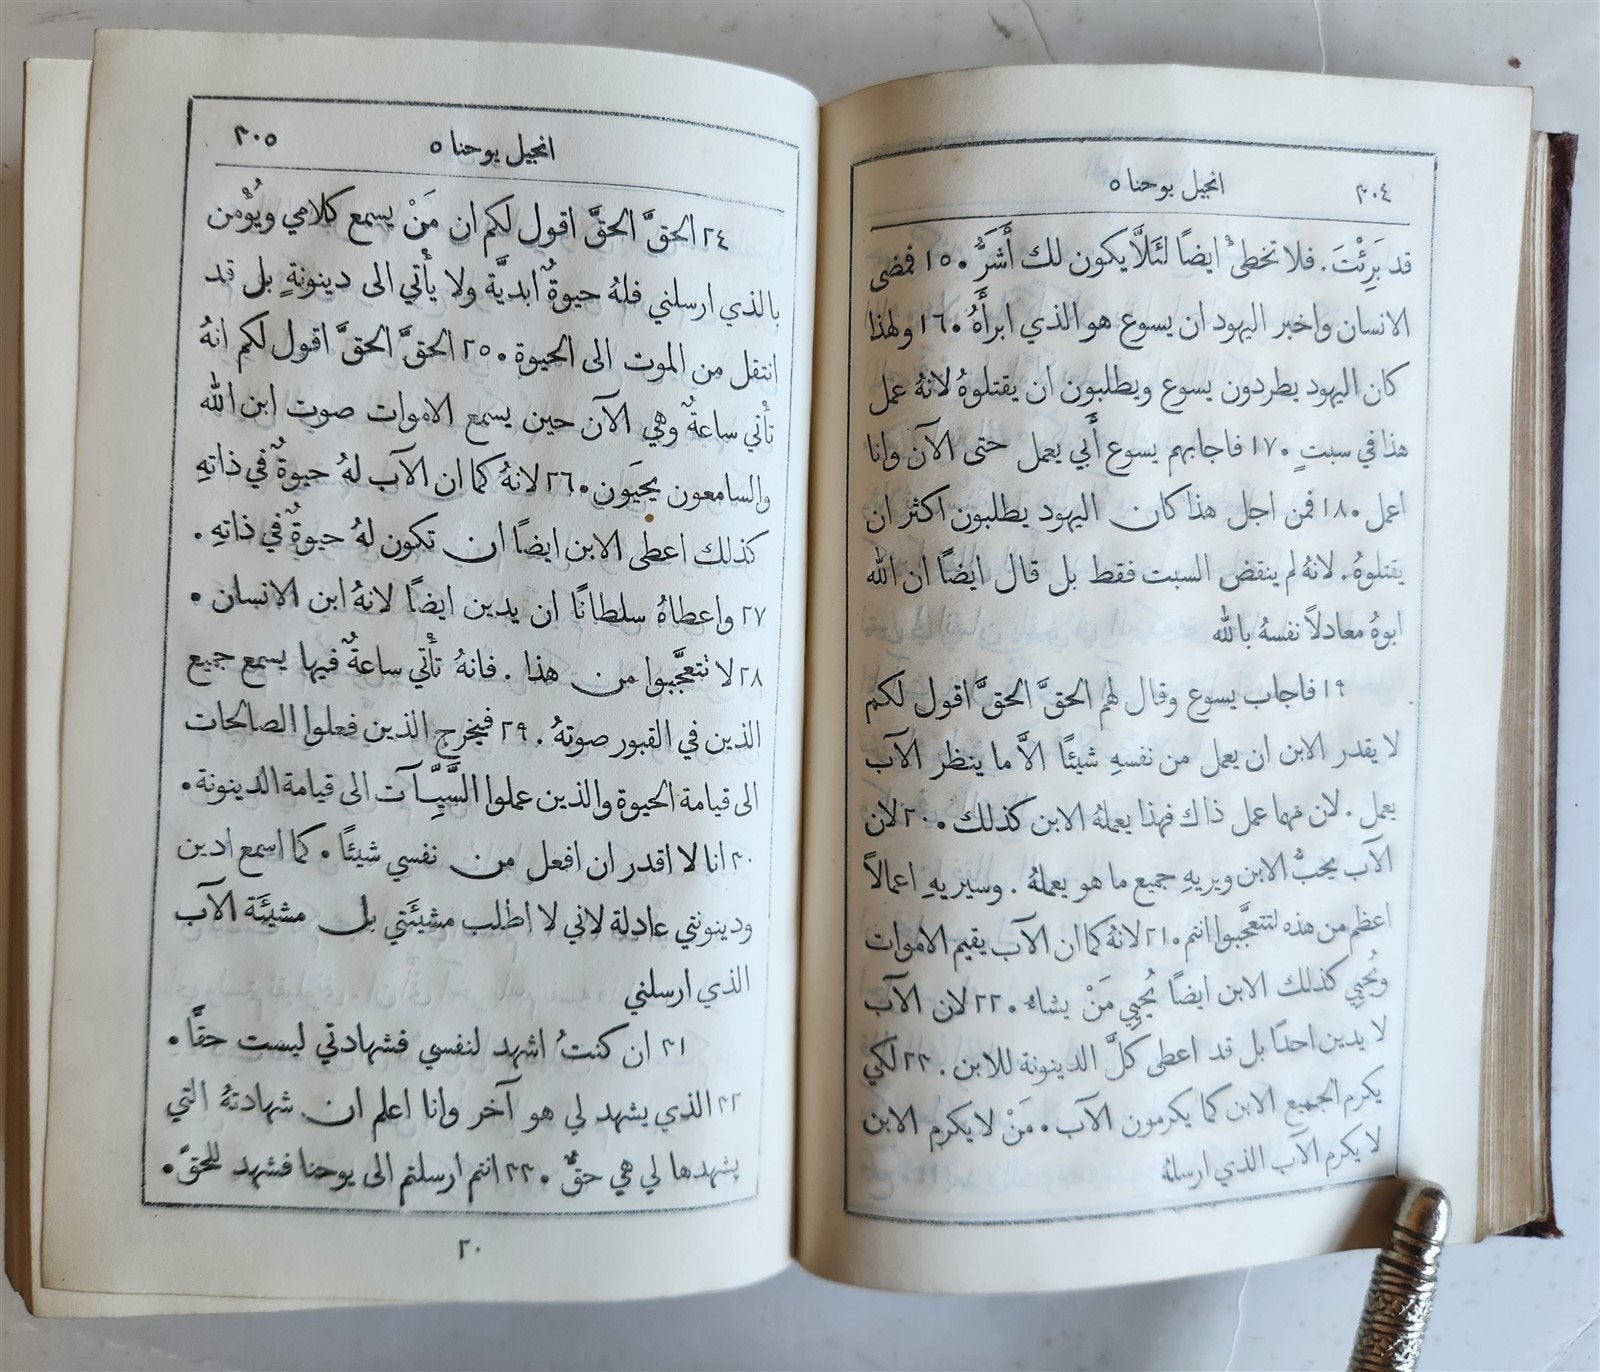 ٣٠٤ انجيل يوحنا ٥
قد بَرِئْتَ. فلا تخطئْ ايضًا لئَلَّا يكون لك أَشَرُّ ٠ ١٥ فمضى
الانسان واخبر اليهود ان يسوع هو الذي ابرأَهُ ٠ ١٦ ولهذا
كان اليهود يطردون يسوع ويطلبون ان يقتلوهُ لانهُ عمل
هذا في سبتٍ ٠ ١٧ فاجابهم يسوع أَبي يعمل حتى الآن وانا
اعمل ٠ ١٨ فمن اجل هذا كان اليهود يطلبون اكثر ان
يقتلوهُ. لانهُ لم ينقض السبت فقط بل قال ايضًا ان الله
ابوهُ معادلاً نفسهُ بالله
١٩ فاجاب يسوع وقال لهم الحقَّ الحقَّ اقول لكم
لا يقدر الابن ان يعمل من نفسهِ شيئًا الَّا ما ينظر الآب
يعمل. لان مهما عمل ذاك فهذا يعملهُ الابن كذلك ٠ ٢٠ لان
الآب يحبُّ الابن ويريهِ جميع ما هو يعملهُ. وسيريهِ اعمالاً
اعظم من هذه لتتعجَّبوا انتم ٠ ٢١ لانهُ كما ان الآب يقيم الاموات
ويُحْيِي كذلك الابن ايضًا يُحْيِي مَنْ يشاء ٠ ٢٢ لان الآب
لا يدين احدًا بل قد اعطى كلَّ الدينونة للابن. ٢٣ لكي
يكرم الجميع الابن كما يكرمون الآب ٠ مَنْ لا يكرم الابن
لا يكرم الآب الذي ارسلهُ
انجيل يوحنا ٥ ٣٠٥
٢٤ الحقَّ الحقَّ اقول لكم ان مَنْ يسمع كلامي ويُؤْمن
بالذي ارسلني فلهُ حيوةٌ ابديَّة ولا يأْتي الى دينونةٍ بل قد
انتقل من الموت الى الحيوة ٠ ٢٥ الحقَّ الحقَّ اقول لكم انهُ
تأْتي ساعةٌ وهي الآن حين يسمع الاموات صوت ابن الله
والسامعون يحيَون ٠ ٢٦ لانهُ كما ان الآب لهُ حيوةٌ في ذاتهِ
كذلك اعطى الابن ايضًا ان تكون لهُ حيوةٌ في ذاتهِ.
٢٧ واعطاهُ سلطانًا ان يدين ايضًا لانهُ ابن الانسان ٠
٢٨ لا تتعجَّبوا من هذا. فانهُ تأْتي ساعةٌ فيها يسمع جميع
الذين في القبور صوتهُ. ٢٩ فيخرج الذين فعلوا الصالحات
الى قيامة الحيوة والذين عملوا السَّيِّآت الى قيامة الدينونة ٠
٣٠ انا لا اقدر ان افعل من نفسي شيئًا ٠ كما اسمع ادين
ودينونتي عادلة لاني لا اطلب مشيئَتي بل مشيئَة الآب
الذي ارسلني
٣١ ان كنتُ اشهد لنفسي فشهادتي ليست حقًّا ٠
٣٢ الذي يشهد لي هو آخر وانا اعلم ان شهادتهُ التي
يشهدها لي هي حقٌّ ٠ ٣٣ انتم ارسلتم الى يوحنا فشهد للحقّ ٠
٢٠